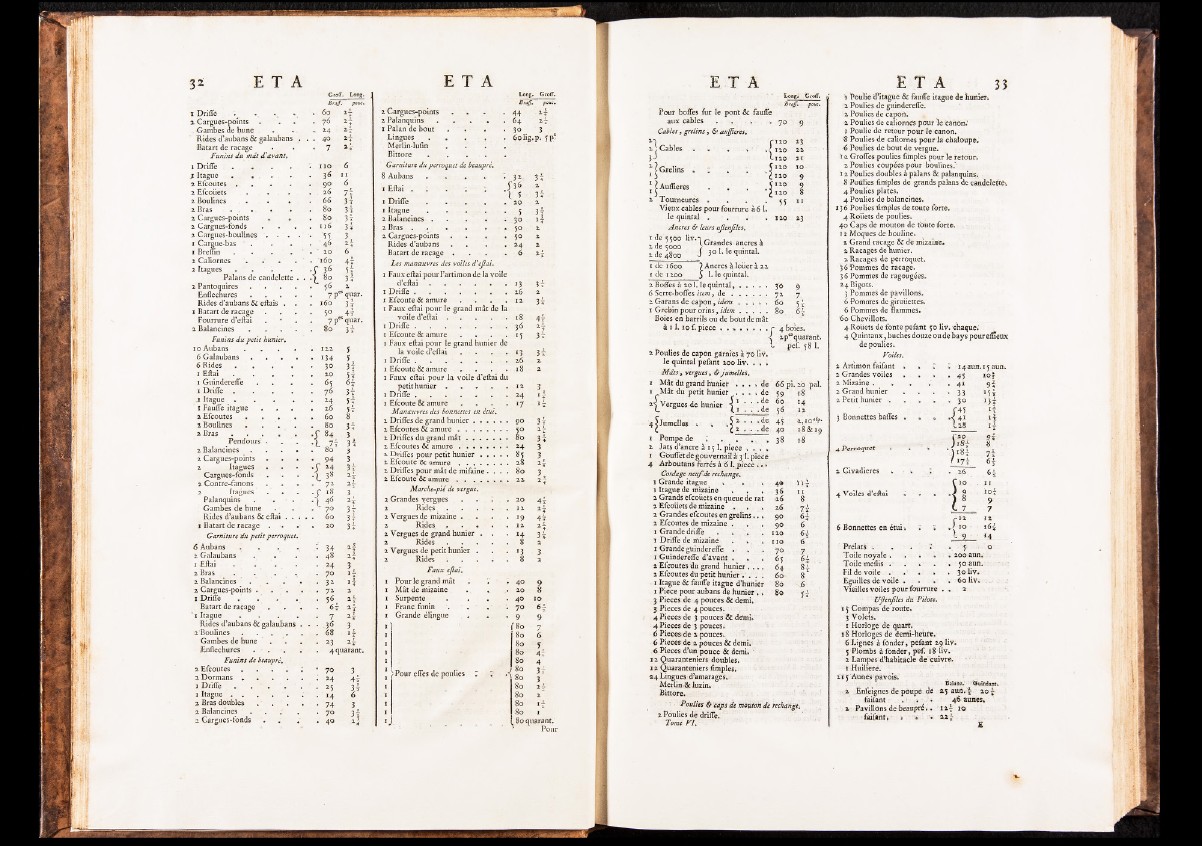 32 E T A
Groff. Long.
Braff. pouc.
1 Driffe . . . . . 60 2½
2 Cargues-points . . . . 76 2½
Gambes de hune . . . . 24 2½
Rides d'aubans & galaubans . . . 40 2½
Batart de racage . . . . 7
Funins du mât d'avant.
1 Driffe . . . . . 110 6
1 Itague . . . . . 36 11
2 Efcoutes . . . . . 90 6
2 Efcoüets . . . . . 26
2 Boulines . . . . . 66
2 Bras . . . . . 80
2 Cargues-points . . . . 80
2 Cargues-fonds . . . . 116
2 Cargues-boulines . . . . 55 3
1 Cargue-bas . . . . 46
1 Breffin . . . . . 20 6
2 Caliornes . . . . . 160
2 Itagues . . . . . 36
Palans de candelette . . . 80
2 Pantoquires . . . . 56 2
Enflechures . . . . 7 p.es quar.
Rides d'aubans & eftais . . . 160
1 Batart de racage . . . . 50
Fourrure d'eftai . . . . 7 p.es quar.
2 Balancines . . . . 80
Funins du petit hunier.
10 Aubans . . . . . 122 5
6 Galaubans . . . . . 134 5
6 Rides . . . . . 30
1 Eftai . . . . . 20
1 Guindereffe . . . . 65
1 Driffe . . . . . 76
1 Itague . . . . . 24
1 Fauffe itague . . . . 26
2 Efcoutes . . . . . 60 8
2 Boulines . . . . . 80
2 Bras . . . . . 84 3
Pendours . . . . 7
2 Balancines . . . . . 80 3
2 Cargues-points . . . . 94 3
2 Itagues . . . . 24
Cargues-fonds . . . . 38
2 Contre-fanons . . . . 72
2 Itagues . . . . 18 3
Palanquins . . . . 46
Gambes de hune . . . . 70
Rides d'aubans & eftai . . . . 60
1 Batart de racage . . . . 20
Garniture du petit perroquet.
6 Aubans . . . . . 34
2 Galaubans . . . . . 48
1 Eftai . . . . . 24 3
2 Bras . . . . . 70
2 Balancines . . . . . 32
2 Cargues-points . . . . 72 2
1 Driffe . . . . . 56
Batart de racage . . . .
1 Itague . . . . . 7
Rides d'aubans & galaubans . . . 36 3
2 Boulines . . . . . 68
Gambes de hune . . . . 23
Enflechures . . . . 4 quarant.
Funins de beaupré.
2 Efcoutes . . . . . 70 3
2 Dormans . . . . . 24
1 Driffe . . . . . 25
1 Itague . . . . . 14 6
2 Bras doubles . . . . 74 3
2 Balancines . . . . . 70
2 Cargues-fonds . . . . 40
E T A
Long. Groff.
Braff. pouc.
2 Cargues-points . . . . 44
2 Palanquins . . . . . 64
1 Palan de bout . . . . 30 3
Lingues . . . . 60 lig. p. 5 p.c
Merlin-lufin . . . .
Bittore . . . .
Garniture du perroquet de beaupré.
8 Aubans . . . . . 32
1 Eftai . . . . . 36 2
5
1 Driffe . . . . . 20 2
1 Itague . . . . . 5
2 Balancines . . . . . 30
2 Bras . . . . . 50 2
2 Cargues-points . . . . 50 2
Rides d'aubans . . . . 24 2
Batart de racage . . . . 6
Les manœuvres des voiles d'eftai.
1 Faux eftai pour l'artimon de la voile
d'eftai . . . . . 13
1 Driffe . . . . . 26 2
1 Efcoute & amure . . . . 12
1 Faux eftai pour le grand mât de la
voile d'eftai . . . . 18
1 Driffe . . . . . 36
1 Efcoute & amure . . . . 15
1 Faux eftai pour le grand hunier de
la voile d'eftai . . . . 13
1 Driffe . . . . . 26 2
1 Efcoute & amure . . . . 18 2
1 Faux eftai pour la voile d'eftai du
petit hunier . . . . 12 3
1 Driffe . . . . . 24
1 Efcoute & amure . . . . 17
Manœuvres des bonnettes en étui.
2 Driffes de grand hunier . . . . 90
2 Efcoutes & amure . . . . 50
2 Driffes du grand mât . . . . 80
2 Efcoutes & amure . . . . 24 3
2 Driffes pour petit hunier . . . . 85 3
2 Efcoute & amure . . . . 28
2 Driffes pour mât de mifaine . . . 80 3
2 Efcoute & amure . . . . 22
Marche-pié de vergue.
2 Grandes vergues . . . . 20
2 Rides . . . . 12
2 Vergues de mizaine . . . . 19
2 Rides . . . . 12
2 Vergues de grand hunier . . . 14
2 Rides . . . . 8 2
2 Vergues de petit hunier . . . 13 3
2 Rides . . . . 8 2
Faux eftai.
1 Pour le grand mât . . . 40 9
1 Mât de mizaine . . . . 20 8
1 Surpente . . . . 40 10
1 Franc funin . . . . 70
1 Grande élingue . . . . 9 9
1 80 7
1 80 6
1 80 5
1 80
1 80 4
1 80
1 Pour effes de poulies . . 80 3
1 80
1 80 2
1 80
1 80 1
1 80 quarant.
Pour
E T A
Long. Groff.
Braff. pouc.
Pour boffes fur le pont & fauffe
aux cables . . . . . 70 9
Cables, grelins, & auffieres.
2 120 23
2 Cables . . . . . 120 22
3 120 21
2 Grelins . . . . . 120 10
1 120 9
1 Auffieres . . . . 120 9
1 120 8
2 Tourneures . . . . . 55 11
Vieux cables pour fourrure à 6 l.
le quintal . . . . . 120 23
Ancres & leurs uftenfiles.
1 de 5500 liv. Grandes ancres à
2 de 5000 30 l. le quintal.
2 de 4800
1 de 1600 Ancres à loüer à 22
1 de 1200 l. le quintal.
2 Boffes à 20 l. le quintal, . . . . 30 9
6 Serre-boffes item, de . . . . 72 7
2 Garans de capon, idem . . . . 60
2 Grelain pour orins, idem . . . . 80
Boies en barrils ou de bout de mât
à 1 l. 10 f. piece . . . . . . 4 boies.
2 p.es quarant.
pef. 58 l.
2 Poulies de capon garnies à 70 liv.
le quintal pefant 200 liv. . . .
Mâts, vergues, & jumelles.
1 Mât du grand hunier . . . . de 66 pi. 20 pal.
1 Mât du petit hunier . . . . de 59 18
2 Vergues de hunier 1 . . . . de 60 14
1 . . . de 56 12
4 Jumelles . . 2 . . . de 45
2 . . . de 40 18 & 19
1 Pompe de . . . . . 38 18
2 Jats d'ancre à 15 l. piece . . .
1 Gouffet de gouvernail à 3 l. piece
4 Arboutans ferrés à 6 l. piece . . .
Cordage neuf de rechange.
1 Grande itague . . . . 40
1 Itague de mizaine . . . 36 11
2 Grands efcoüets en queue de rat 26 8
2 Efcoüets de mizaine . . . 26
2 Grandes efcoutes en grelins . . . 90
2 Efcoutes de mizaine . . . 90 6
1 Grande driffe . . . . 120
1 Driffe de mizaine . . . 110 6
1 Grande guindereffe . . . 70 7
1 Guindereffe d'avant . . . 65
2 Efcoutes du grand hunier . . . . 64
2 Efcoutes du petit hunier . . . . 60 8
1 Itague & fauffe itague d'hunier 80 6
1 Piece pour aubans de hunier . . 80
3 Pieces de 4 pouces & demi.
3 Pieces de 4 pouces.
4 Pieces de 3 pouces & demi.
4 Pieces de 3 pouces.
6 Pieces de 2 pouces.
6 Pieces de 2 pouces & demi.
6 Pieces d'un pouce & demi.
12 Quaranteniers doubles.
12 Quaranteniers fimples.
24 Lingues d'amarages.
Merlin & luzin.
Bittore.
Poulies & caps de mouton de rechange.
2 Poulies de driffe.
Tome VI.
E T A 33
1 Poulie d'itague & fauffe itague de hunier.
2 Poulies de guindereffe.
2 Poulies de capon.
2 Poulies de caliornes pour le canon.
1 Poulie de retour pour le canon.
8 Poulies de caliornes pour la chaloupe.
6 Poulies de bout de vergue.
12 Groffes poulies fimples pour le retour.
2 Poulies coupées pour boulines.
12 Poulies doubles à palans & palanquins.
8 Poulies fimples de grands palans de candelette.
4 Poulies plates.
4 Poulies de balancines.
136 Poulies fimples de toute forte.
4 Roüets de poulies.
40 Caps de mouton de toute forte.
12 Moques de bouline.
1 Grand racage & de mizaine.
2 Racages de hunier.
2 Racages de perroquet.
36 Pommes de racage.
36 Pommes de ragougées.
24 Bigots.
3 Pommes de pavillons.
6 Pommes de girouettes.
6 Pommes de flammes.
60 Chevillots.
4 Roüets de fonte pefant 50 liv. chaque.
4 Quintaux, buches douze ou de bays pour effieux
de poulies.
Voiles.
2 Artimon faifant . . . . 14 aun. 15 aun.
2 Grandes voiles . . . . 45
2 Mizaine . . . . . 41
2 Grand hunier . . . . 33
2 Petit hunier . . . . 30
3 Bonnettes baffes . . . 45
41
28
4 Perroquet . . . . 20
8


2 Civadieres . . . . 26
4 Voiles d'eftai . . . . 10 11
9
8 9
7 7
6 Bonnettes en étui . . . 12 12
10
9 14
Prelats . . . . . 5 0
Toile noyale . . . . . 200 aun.
Toile meflis . . . . . 50 aun.
Fil de voile . . . . . 30 liv.
Eguilles de voile . . . . 60 liv.
Vieilles voiles pour fourrure . . 2
Uftenfiles du Pilote.
15 Compas de route.
3 Volets.
1 Horloge de quart.
18 Horloges de demi-heure.
6 Lignes à fonder, pefant 29 liv.
5 Plombs à fonder, pef. 18 liv.
2 Lampes d'habitacle de cuivre.
1 Huiliere.
115 Aunes pavois.
Battant. Guindant.
2 Enfeignes de poupe de 25 aun.
faifant . . . 46 aunes.
2 Pavillons de beaupré . . 10
faifant . . . 22
E